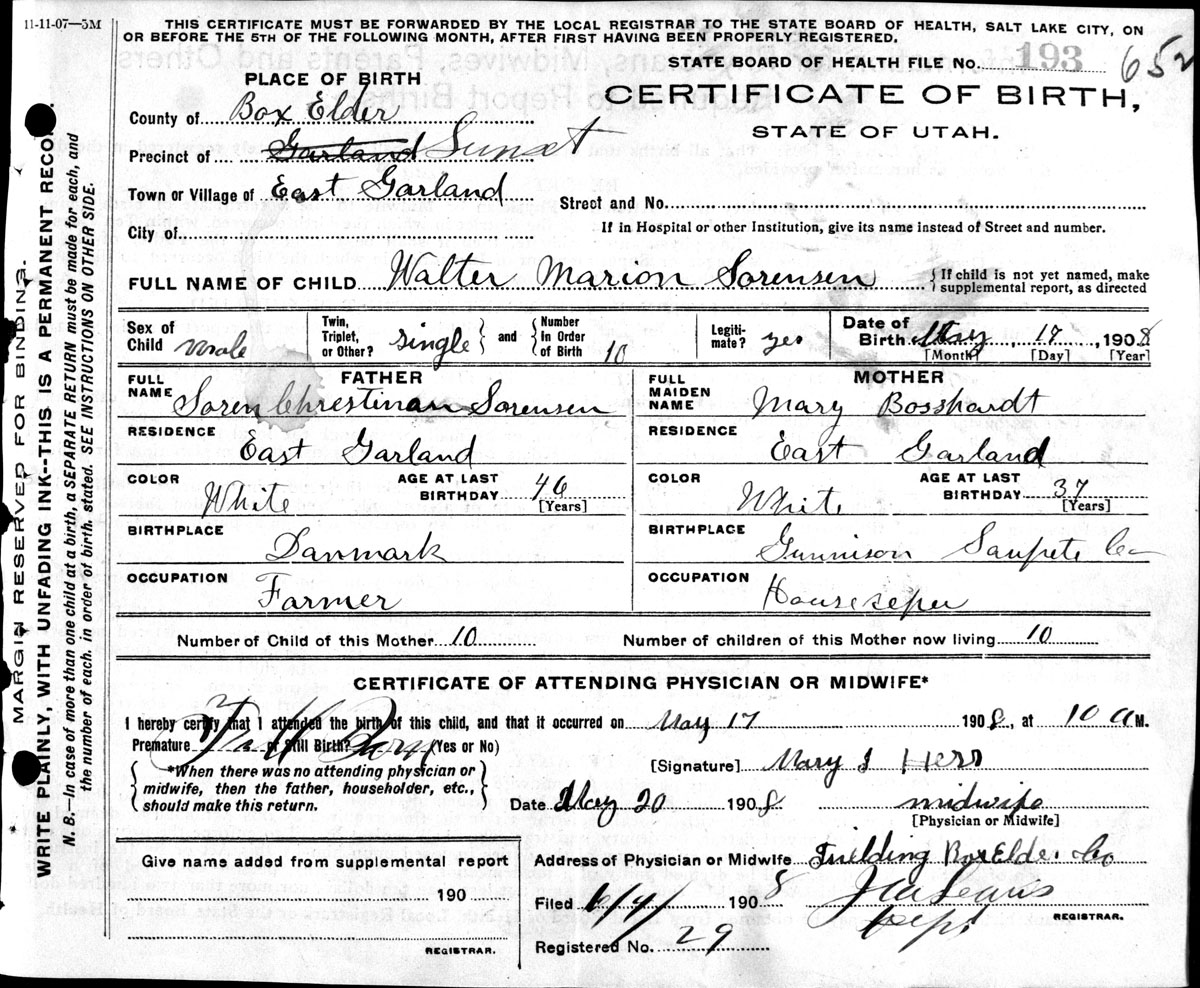 11-11-07—5M
THIS CERTIFICATE MUST BE FORWARDED BY THE LOCAL REGISTRAR TO THE STATE BOARD OF HEALTH, SALT LAKE CITY, ON
OR BEFORE THE 5TH OF THE FOLLOWING MONTH, AFTER FIRST HAVING BEEN PROPERLY REGISTERED.
STATE BOARD OF HEALTH FILE NO. 193 652
PLACE OF BIRTH
CERTIFICATE OF BIRTH,
STATE OF UTAH.
County of Box Elder
Precinct of Garland Sunset
Town or Village of East Garland
Street and No.
City of
If in Hospital or other Institution, give its name instead of Street and number.
FULL NAME OF CHILD Walter Marion Sorensen {If child is not yet named, make supplemental report, as directed
Sex of Child male
Twin, Triplet, or Other? single } and { Number in Order of Birth 10
Legitimate? yes
Date of Birth May, 17, 1908
[Month] [Day] [Year]
FATHER
FULL NAME Soren Chrestinan Sorensen
RESIDENCE East Garland
COLOR White AGE AT LAST BIRTHDAY 46 [Years]
BIRTHPLACE Danmark
OCCUPATION Farmer
MOTHER
FULL MAIDEN NAME Mary Bosshardt
RESIDENCE East Garland
COLOR White AGE AT LAST BIRTHDAY 37 [Years]
BIRTHPLACE Gunnison Sanpete Co
OCCUPATION Houseseper
Number of Child of this Mother 10 Number of children of this Mother now living 10
CERTIFICATE OF ATTENDING PHYSICIAN OR MIDWIFE*
I hereby certify that I attended the birth of this child, and that it occurred on May 17 1908, at 10 a M.
Premature or Still Birth? (Yes or No)
Full Born
*When there was no attending physician or midwife, then the father, householder, etc., should make this return.
[Signature] Mary J Herr
Date May 20 1908 midwife
[Physician or Midwife]
Give name added from supplemental report
190
REGISTRAR.
Address of Physician or Midwife Fielding Box Elder Co
Filed 6/4/ 1908
REGISTRAR.
Registered No. 29
MARGIN RESERVED FOR BINDING.
WRITE PLAINLY, WITH UNFADING INK--THIS IS A PERMANENT RECO
N. B.—In case of more than one child at a birth, a SEPARATE RETURN must be made for each, and
the number of each. in order of birth. stated. SEE INSTRUCTIONS ON OTHER SIDE.